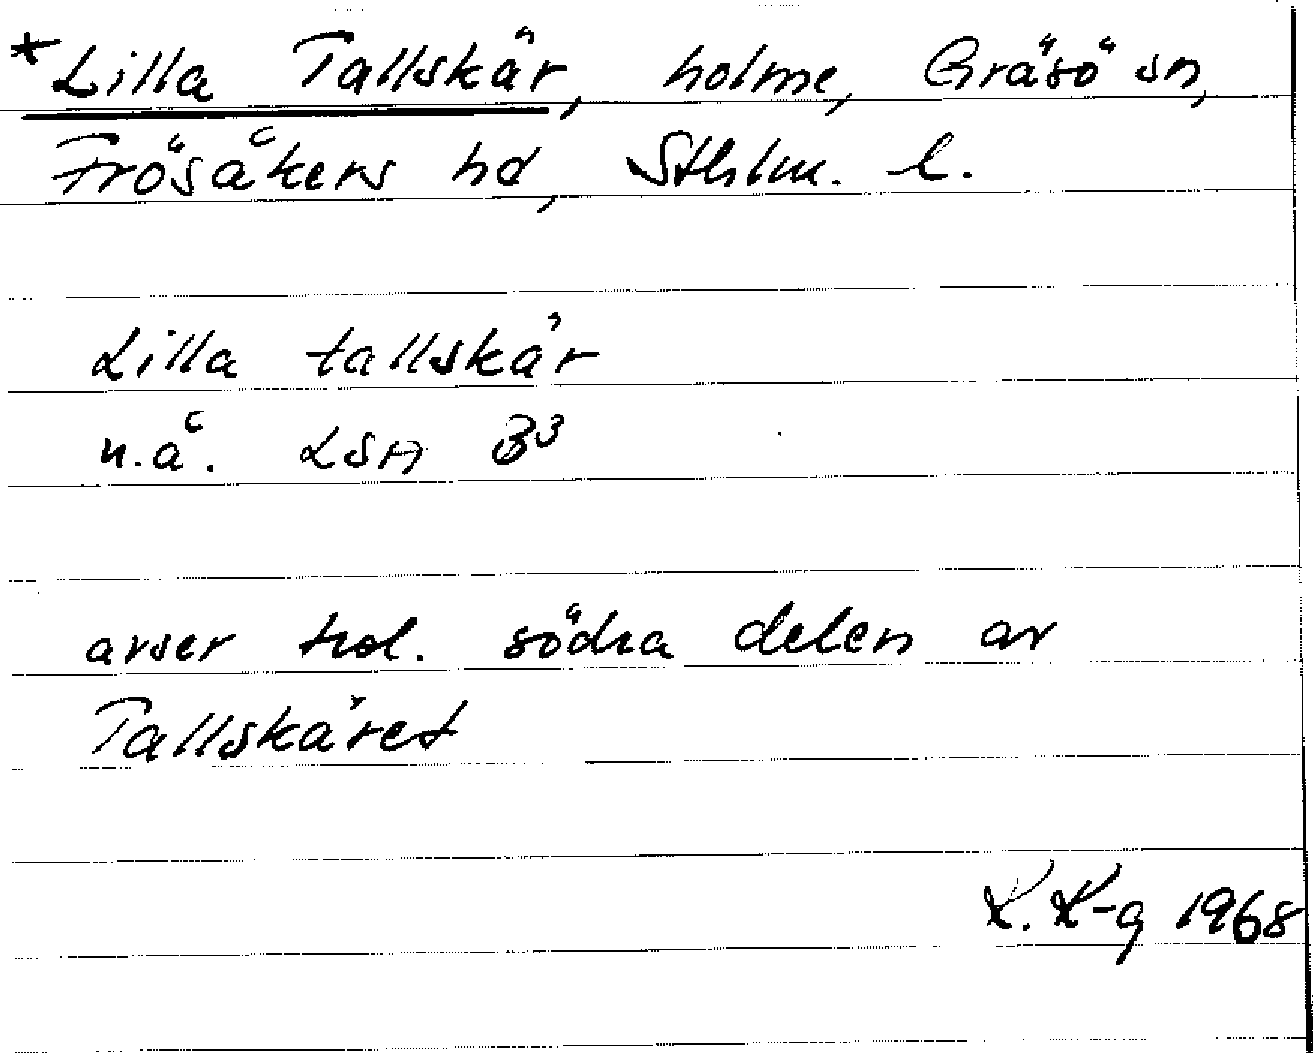 *Lilla Tallskär, holme, Gräsö sn,
Frösåkers hd, Sthlm. l.
Lilla tallskär
n.å. LSA B3
avser trol. södra delen av
Tallskäret
K. K-g 1968